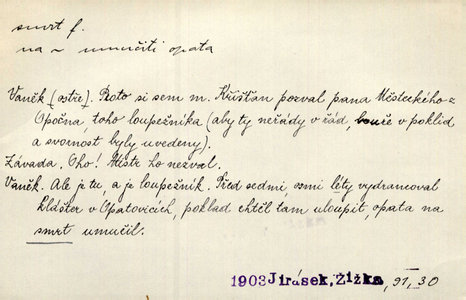 smrt f.
na ~ umučiti opata
Vaněk (ostře). Proto si sem m. Křišťan pozval pana Městeckého z
Opočna, toho loupežníka (aby ty neřády v řád, bouře v poklid
a svornost byly uvedeny).
Závada. Oho! Mistr ho nezval.
Vaněk. Ale je tu, a je loupežník. Před sedmi, osmi léty vydrancoval
klášter v Opatovicích, poklad chtěl tam uloupit, opata na
smrt umučil.
1903 Jirásek, Žižka, 91, 30